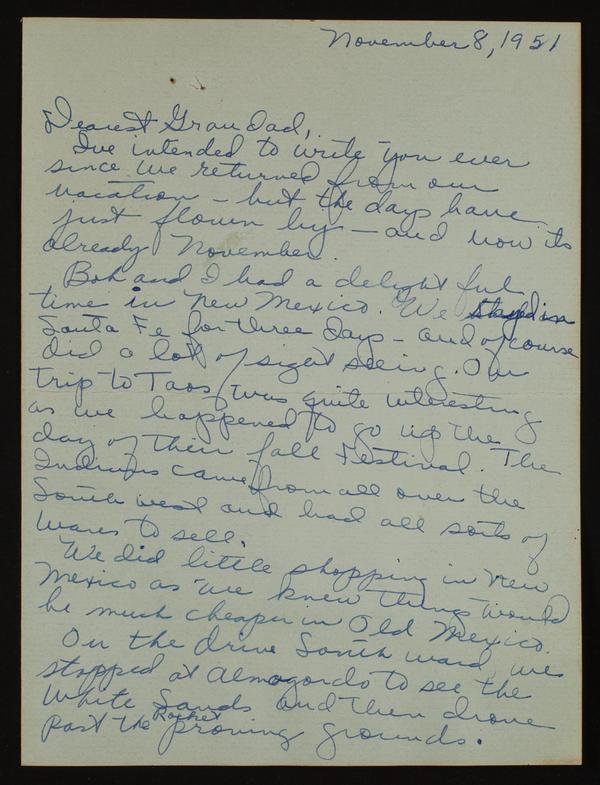 November 8, 1951
Dearest Grandad,
I've intended to write you ever
since we returned from our
vacation - but the days have
just flown by - and now its
already November.
Bob and I had a delightful
time in New Mexico. We stayed in
Santa Fe for three days - and of course
did a lot of sight seeing. Our
trip to Taos was quite interesting
as we happened to go up the
day of their fall Festival. The
Indians came from all over the
South west and had all sorts of
wares to sell.
We did little shopping in New
Mexico as we knew things would
be much cheaper in Old Mexico.
On the drive South ward, we
stopped at Almogordo to see the
White Sands and then drove
past the Rocket proving grounds.